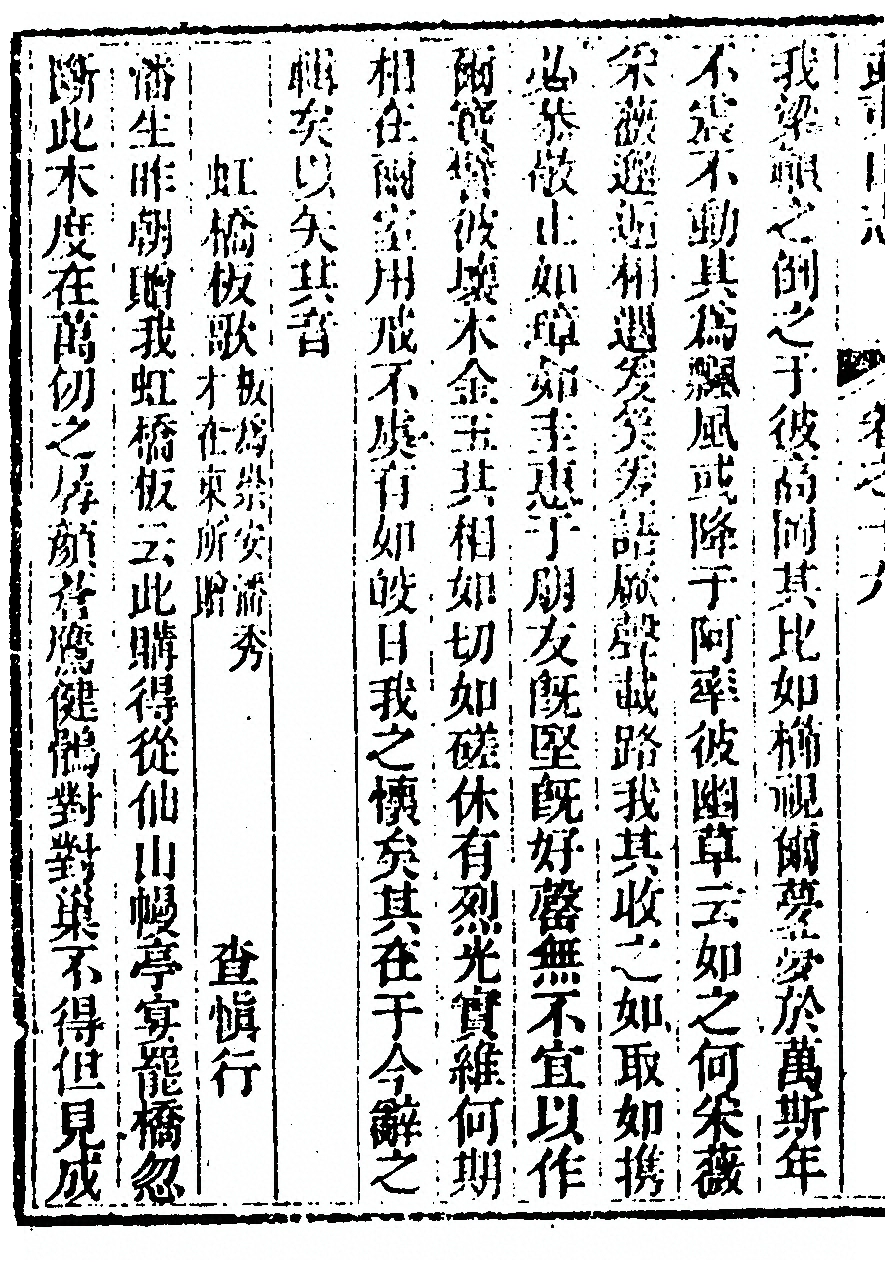 武夷山志 卷之十九
我梁顛之倒之于彼高岡其比如櫛視爾夢夢於萬斯年
不震不動其爲飄風或降于阿率彼幽草云如之何采薇
采薇邂逅相遇爰笑爰語厥聲載路我其收之如取如携
必恭敬止如璋如圭惠于朋友既堅既好罄無不宜以作
爾寶譬彼壞木金玉其相如切如磋休有烈光實維何期
相在爾室用戒不虞有如皎日我之懷矣其在于今辭之
輯矣以矢其音
虹橋板歌 板爲崇安潘秀才在東所贈 查慎行
潘生昨朝贈我虹橋板云此購得從仙山幔亭宴罷橋忽
斷此木度在萬仞之孱顏蒼鷹健鶻對對巢不得但見成